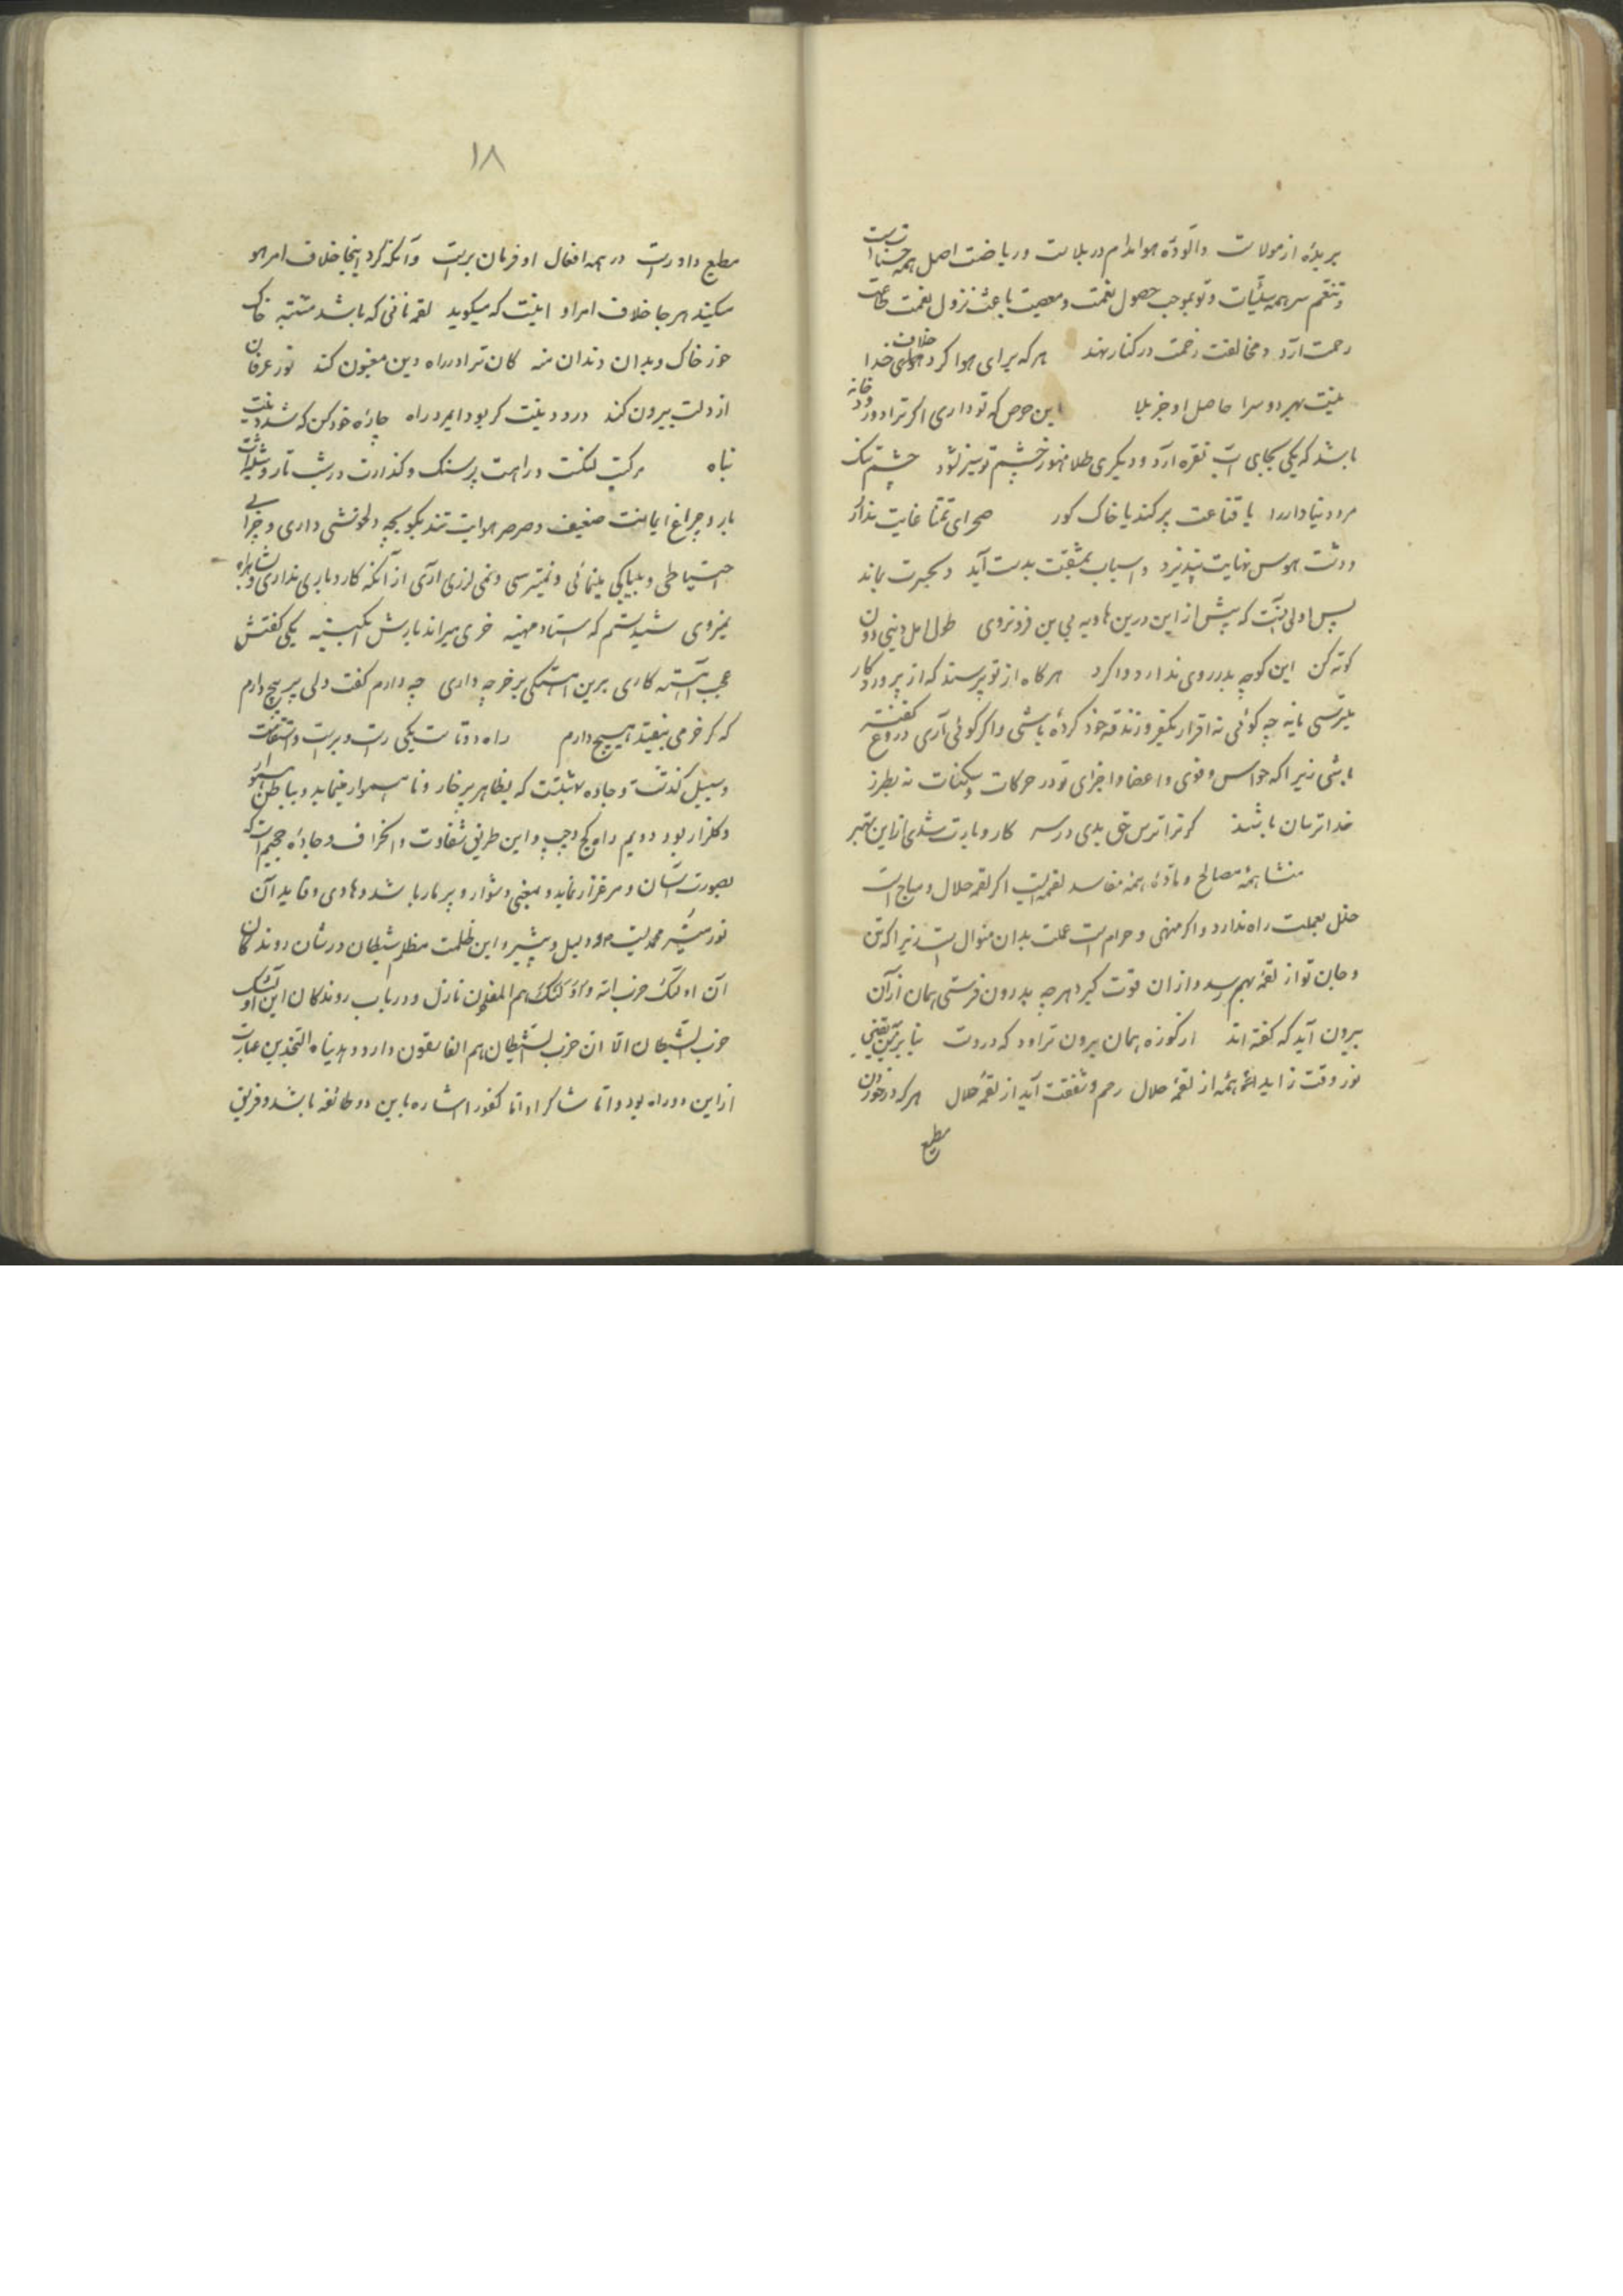 بریدهٔ از مولاست و آلودهٔ هوا مدام در بلاست و ریاضت اصل همه حسنات است
و تنعم سر همه سیّئات و توبه موجب حصول نعمت و معصیت باعث نزول نقمت طاعت
رحمت آرد و مخالفت زحمت در کنار نهد هر که برای هوا کرد خلاف خدا
نیست بهر دو سرا حاصل او جز بلا این حرص که تو داری اگر ترا دو رود خانه
باشد که یکی بجای آب نقره آرد و دیگری طلا هنوز چشم تو سیر نشود چشم تنک
مرد دنیادار را یا قناعت پر کند یا خاک کور صحرای تمنّا غایت ندارد
و دشت هوس نهایت نپذیرد و اسباب بمشقت بدست آید و بحیرت بماند
پس اولی آنست که پیش از این درین هاویه بی بن فرو نروی طول امل دنیی دون
کوته کن این کوچه بدر روی ندارد واکرد هر کاه از تو پرسند که از پروردکار
میترسی یا نه چه کوئی نه اقرار بکفر و زندقه خود کردهٔ باشی و اکر کوئی آری دروغ کفته
باشی زیرا که حواس و قوی و اعضا و اجزای تو در حرکات و سکنات نه بطرز
خداترسان باشد کر ترا ترس حق بدی در سر کار و بارت شدی از این بهتر
منشأ همهٔ مصالح و مادهٔ همه مفاسد لقمه است اکر لقمه حلال و مباح است
خلل بعملت راه ندارد و اکر منهی و حرام است عملت بدان منوال است زیرا که تن
و جان تو از لقمه بهم رسد و از ان قوت کیرد هرچه بدرون فرستی همان از آن
بیرون آید که کفته اند از کوزه همان برون تراود که دروست بنابرین یقینی
نور وقت زاید همه از لقمهٔ حلال رحم و شفقت آید از لقمهٔ حلال هر که در خوردن
مطیع
۱۸
مطیع داورست در همه افعال او فرمان برست و آنکه کرد اینجا خلاف امر هو
میکند هر جا خلاف امر او اینست که میکوید لقمه نانی که باشد مشتبه خاک
خور خاک و بدان دندان منه کان ترا در راه دین مغبون کند نور عرفان
از دلت بیرون کند درد دینت کر بود ایمرد راه چارهٔ خود کن که شد دینت
تباه مرکبت لنکست و راهت پر سنک و کذارت در شب تار و شیشه ات
بار و چراغ ایمانت ضعیف و صرصر هوایت تند بکو بچه دلخوشی داری و چرا بی
احتیاطی و بیباکی مینمائی و نمیترسی و نمی لرزی آری از آنکه کار و باری نداری و شاهراه
نمیروی شنیدستم که استاد مهنه خری میراند بارش آبکینه یکی کفتش
عجب آهسته کاری برین آهستکی بر خر چه داری چه دارم کفت دلی پر پیچ دارم
که کر خر می بیفتد هیچ دارم راه دوتاست یکی رست و برست و استقامت
و سبیل کذشت و جاده بهشتست که بظاهر پر خار و ناهموار مینماید و بباطن هموار
و کلزار بود دویم راه کج و چپ و این طریق شقاوت و انحراف و جادهٔ جحیم است که
بصورت آسان و مرغزار نماید و بمعنی دشوار و پر مار باشد و هادی و قاید آن
نور منیر محمدیست و دلیل و بشیر و این ظلمت مظلم شیطان در شأن روندکان
آن اولئک حزب الله و اولئک هم المفلحون نازل و در باب روندکان این اولئک
حزب الشیطان الا ان حزب الشیطان هم الخاسرون وارد و هدیناه النجدین عبارت
از این دو راه بود و اما شاکرا و اما کفورا اشاره باین دو طائفه باشد و فریق